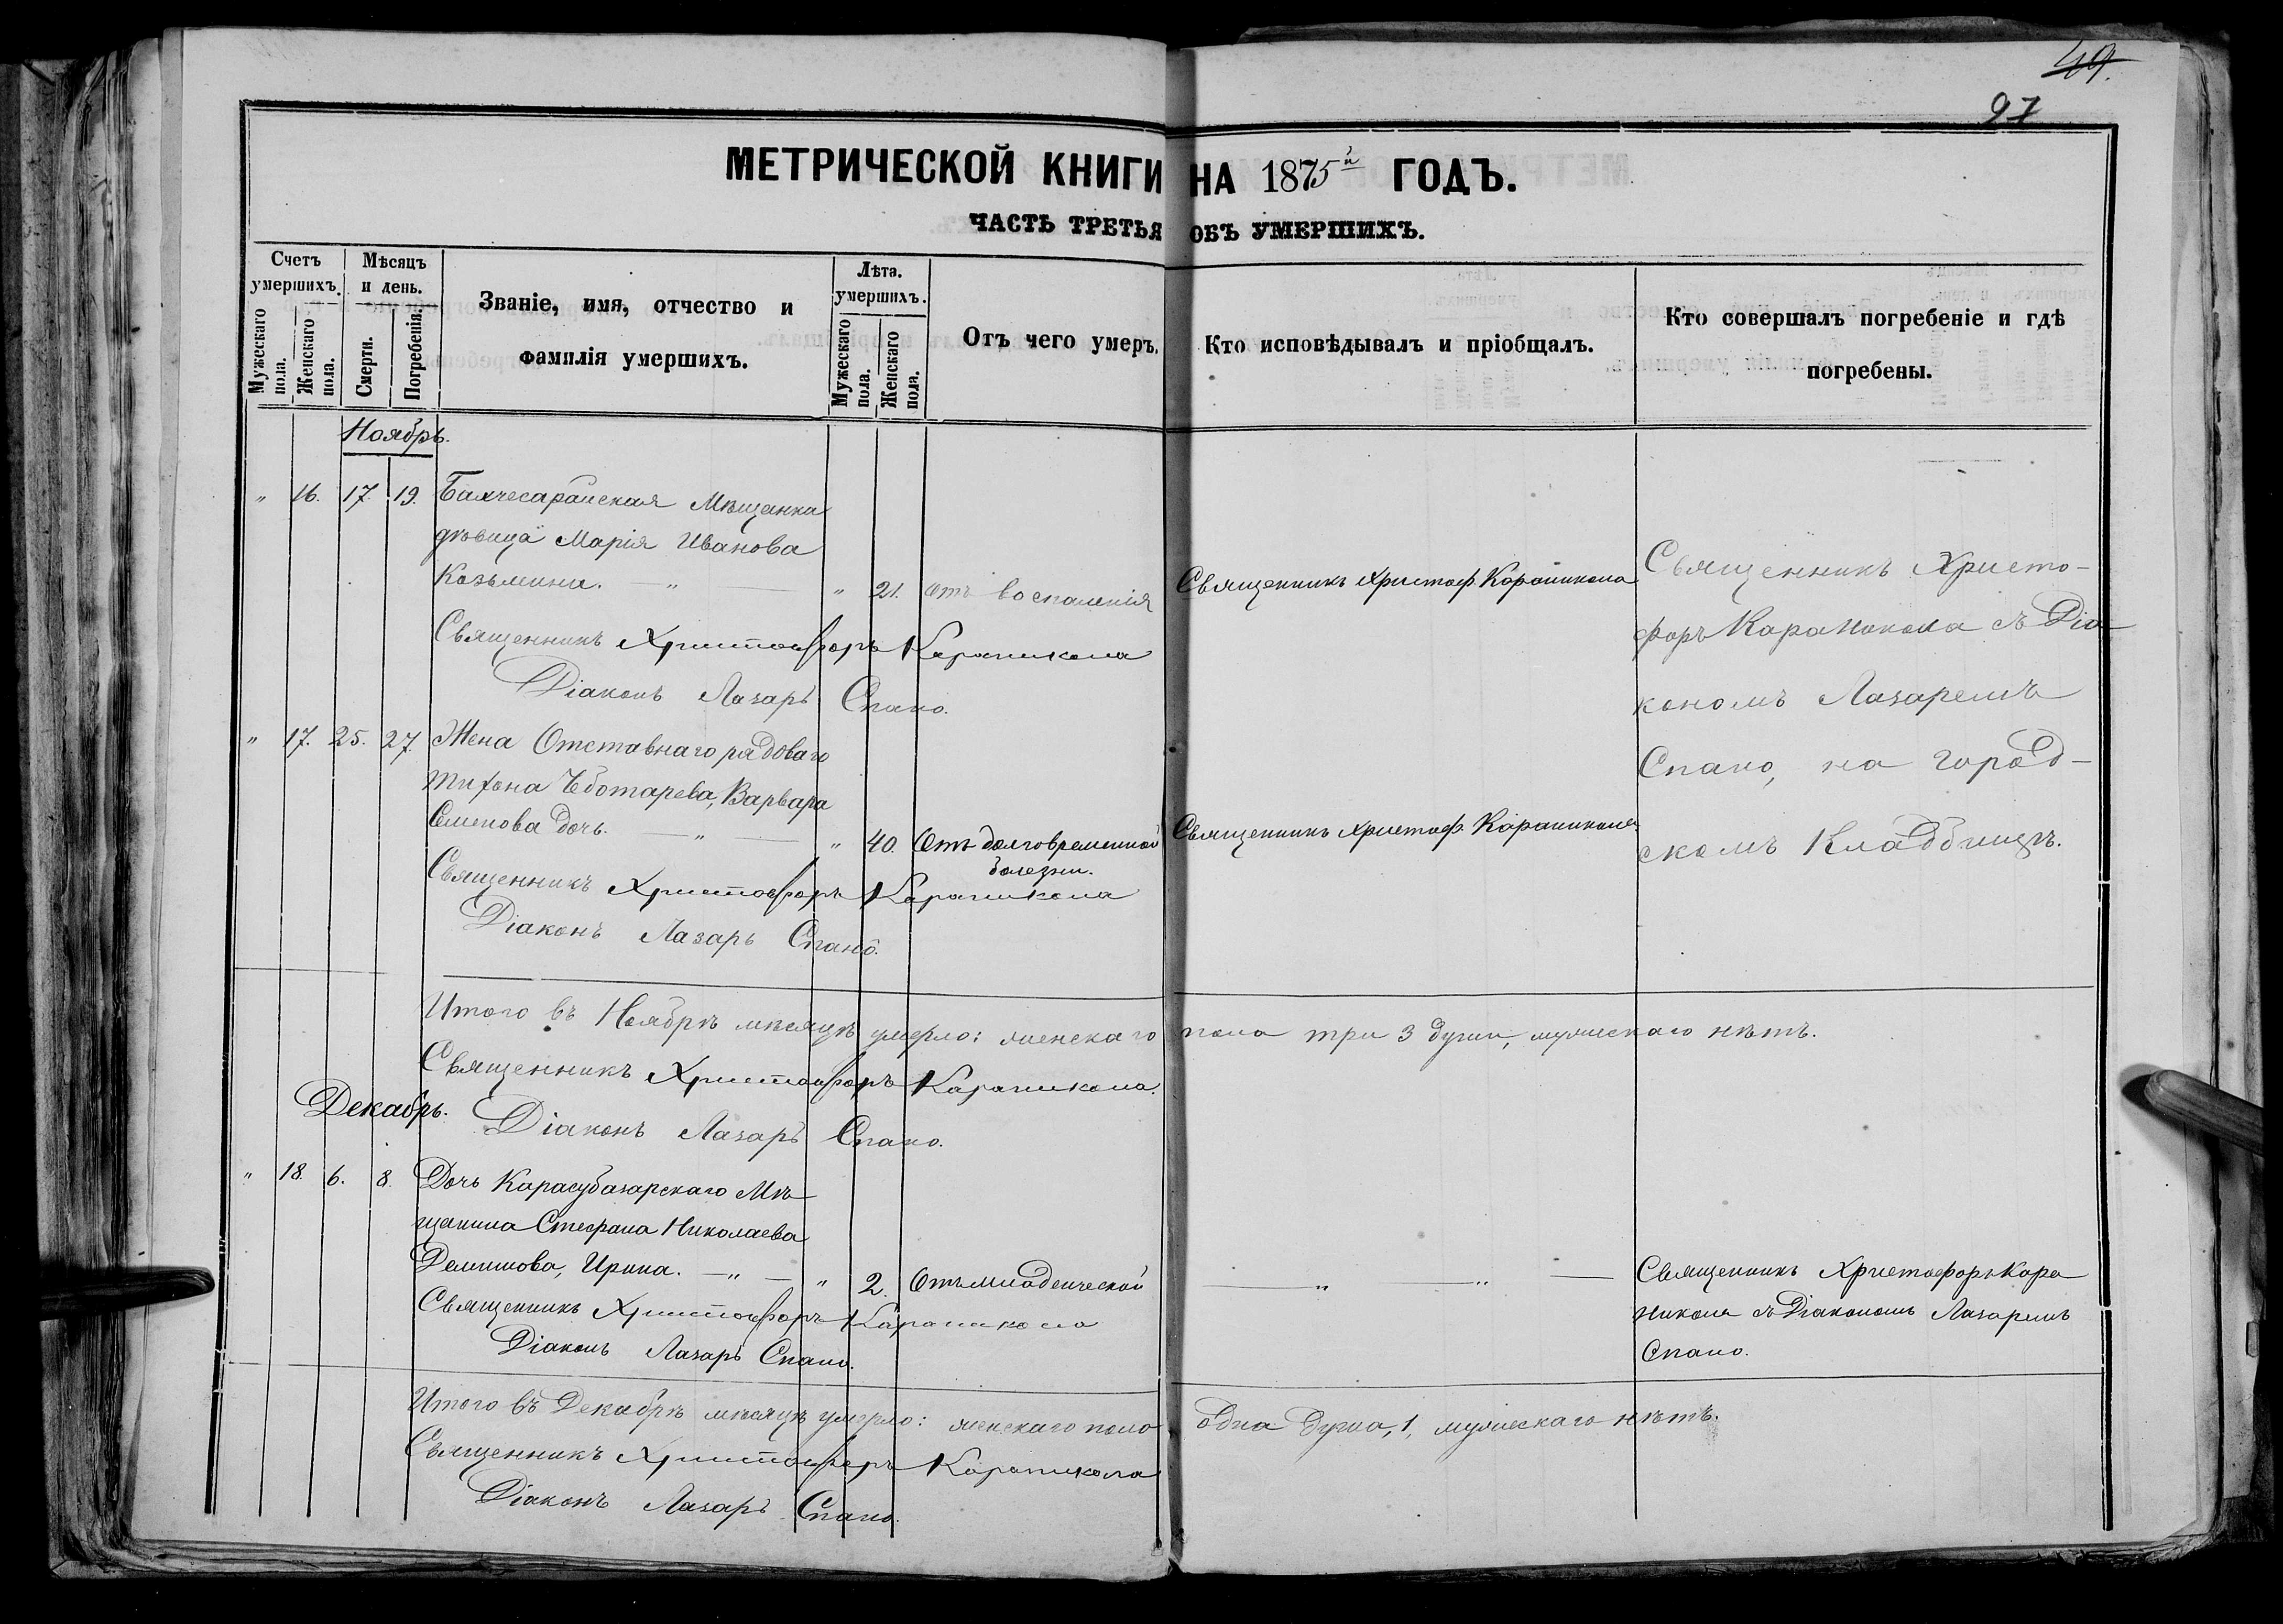 49.
97
МЕТРИЧЕСКОЙ КНИГИ НА 1875й ГОДЪ.
ЧАСТЬ ТРЕТЬЯ ОБЪ УМЕРШИХЪ.
Счетъ умершихъ.
Мужескаго пола.
Женскаго пола.
Мѣсяцъ и день.
Смерти.
Погребенія.
Званіе, имя, отчество и
фамилія умершихъ.
Лѣта. умершихъ.
Мужескаго пола.
Женскаго пола.
Отъ чего умеръ.
Кто исповѣдывалъ и пріобщалъ.
Кто совершалъ погребеніе и гдѣ
погребены.
Ноябрь.
" 16. 17. 19. Бахчесарайская Мѣщанка
дѣвица Марія Иванова
Козьмина. — " — " 21. Отъ воспаленія Священникъ Христоф. Караникола
Священникъ Христофоръ Караникола
Діаконъ Лазарь Спано.
Священникъ Христо-
форъ Караникола съ Діа-
кономъ Лазаремъ
Спано, на город-
скомъ Кладбищѣ.
" 17. 25. 27. Жена Отставнаго рядоваго
Тихона Чеботарева, Варвара
Семенова дочь. — " — " 40. Отъ долговременной Священникъ Христоф. Караникола
болезни.
Священникъ Христофоръ Караникола
Діаконъ Лазарь Спано.
Итого въ Ноябрѣ мѣсяцѣ умерло: женскаго пола три 3 души, мужескаго нѣтъ.
Священникъ Христофоръ Караникола.
Декабрь.
Діаконъ Лазарь Спано.
" 18. 6. 8. Дочь Карасубазарскаго Мѣ-
щанина Стефана Николаева
Ирина. — " — " 2. Отъ младенческой — " — " —
Священникъ Христофоръ Караникола
Діаконъ Лазарь Спано.
Священникъ Христофоръ Кара
никола съ Діакономъ Лазаремъ
Спано.
Итого въ Декабрѣ мѣсяцѣ умерло: женскаго пола одна душа, 1, мужескаго нѣтъ.
Священникъ Христофоръ Караникола
Діаконъ Лазарь Спано.